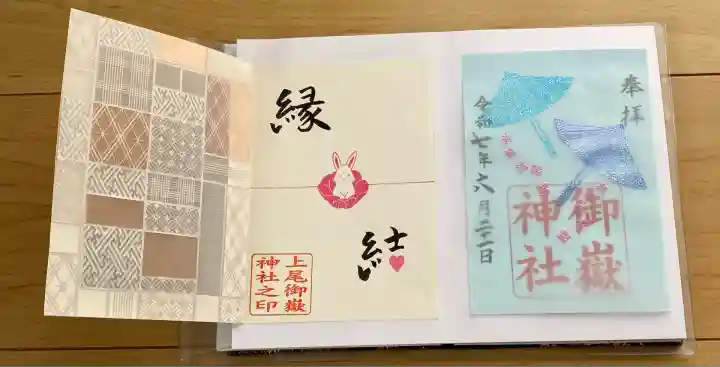 奉拝
御嶽
神社
令和七年六月二十一日
縁
結
上尾御嶽
神社之印